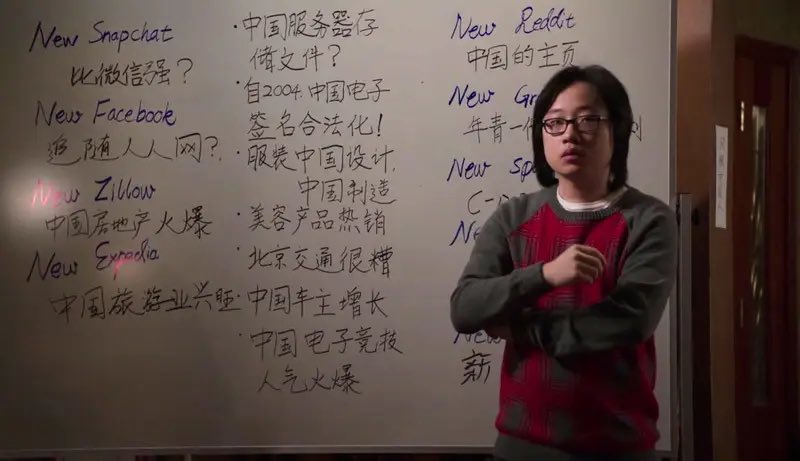 New Snapchat
比微信强？
New Facebook
追随人人网？
New Zillow
中国房地产火爆
New Expedia
中国旅游业兴旺
·中国服务器存
储文件？
·自2004.中国电子
签名合法化！
·服装中国设计，
中国制造
·美容产品热销
·北京交通很糟
·中国车主增长
·中国电子竞技
人气火爆
New Reddit
中国的主页
New
年青一
New
C-
New
新